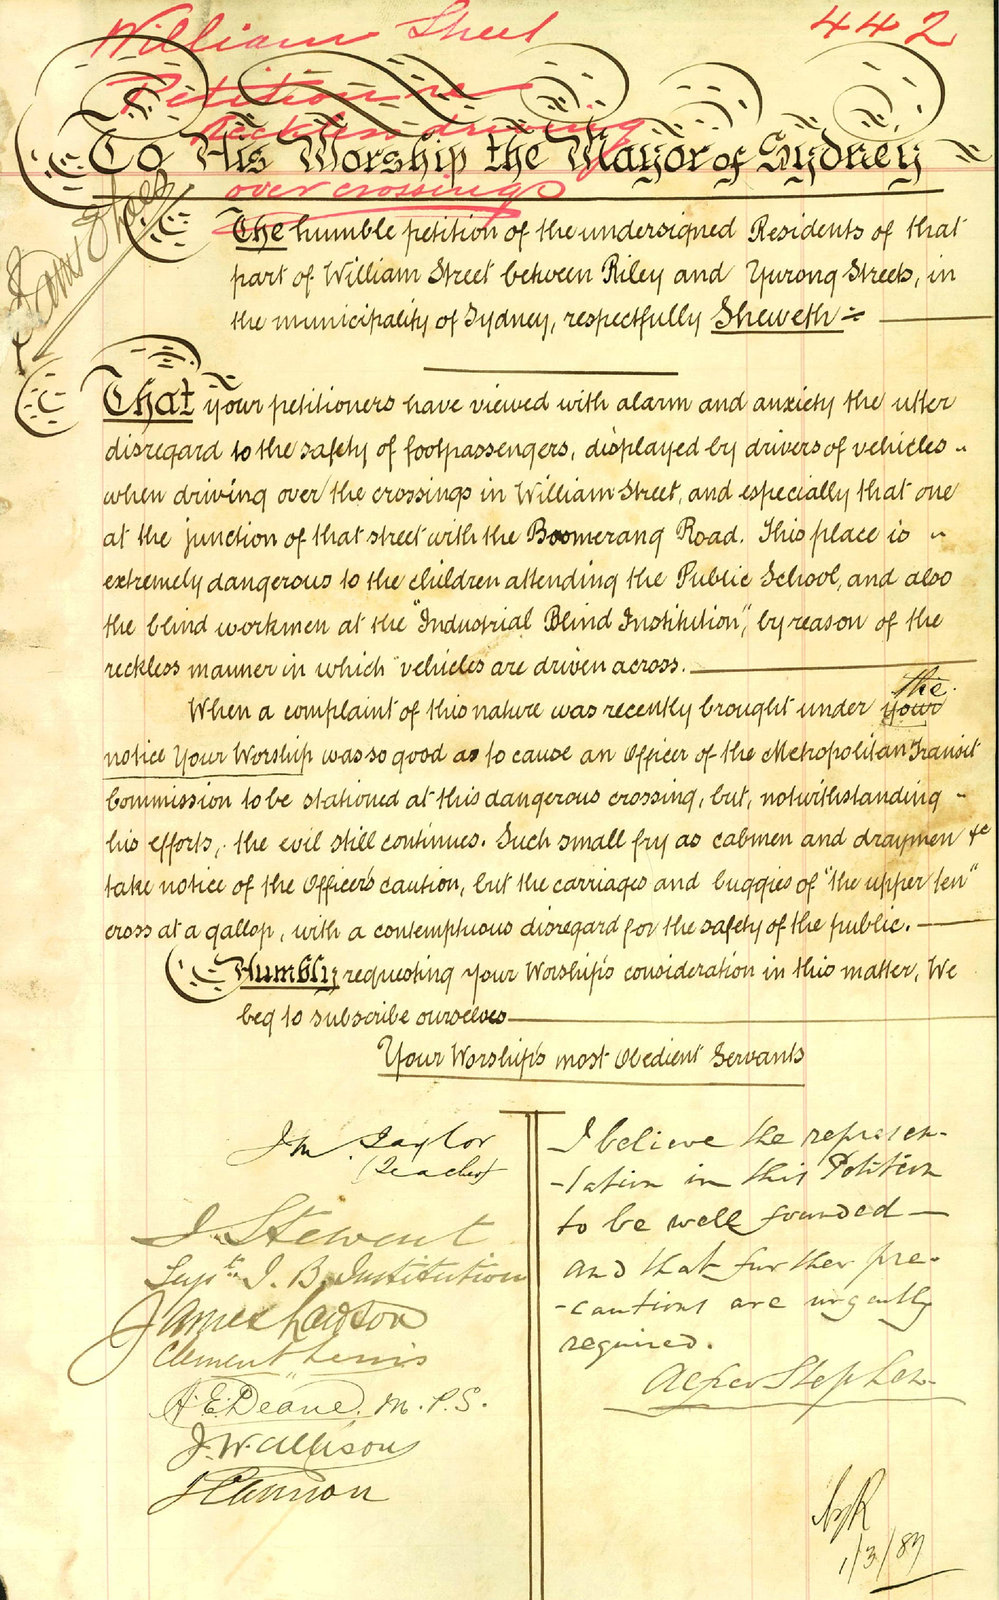 William Street
442
Petition re
reckless driving
over crossings
To His Worship the Mayor of Sydney
The humble petition of the undersigned Residents of that
part of William Street between Riley and Yurong Streets, in
the municipality of Sydney, respectfully Sheweth :-
That your petitioners have viewed with alarm and anxiety the utter
disregard to the safety of footpassengers, displayed by drivers of vehicles
when driving over the crossings in William Street, and especially that one
at the junction of that street with the Boomerang Road. This place is
extremely dangerous to the children attending the Public School, and also
the blind workmen at the "Industrial Blind Institution", by reason of the
reckless manner in which vehicles are driven across.
the
When a complaint of this nature was recently brought under your
notice Your Worship was so good as to cause an Officer of the Metropolitan Transit
Commission to be stationed at this dangerous crossing, but, notwithstanding
his efforts, the evil still continues. Such small fry as cabmen and draymen &c
take notice of the Officer's caution, but the carriages and buggies of "the upper ten"
cross at a gallop, with a contemptuous disregard for the safety of the public.
Humbly requesting your Worship's consideration in this matter, We
beg to subscribe ourselves
Your Worship's most Obedient Servants
J M Taylor
(Teacher)
J. Stewart
Supt. I. B. Institution
James
Clement Lewis
A. E. Deane. M. P. S.
J. W. Allison
I believe the represen-
-tation in this Petition
to be well founded —
and that further pre-
-cautions are urgently
required.
Alfred Stephen
1/3/87